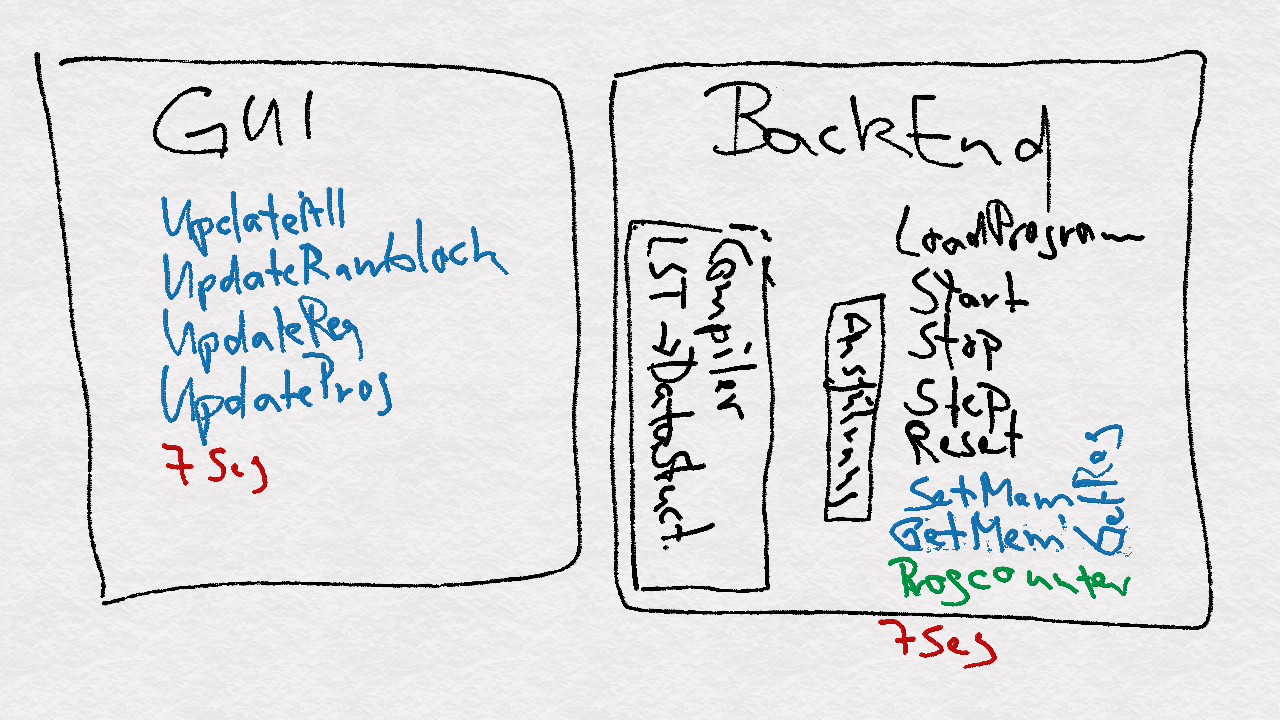 GUI
UpdateAll
UpdateRamblock
UpdateReg
UpdateProg
7Seg
BackEnd
Compiler
LST → DataStruct.
LoadProgram
Start
Stop
Step
Reset
SetMem
GetMem
GetReg
Progcounter
7Seg